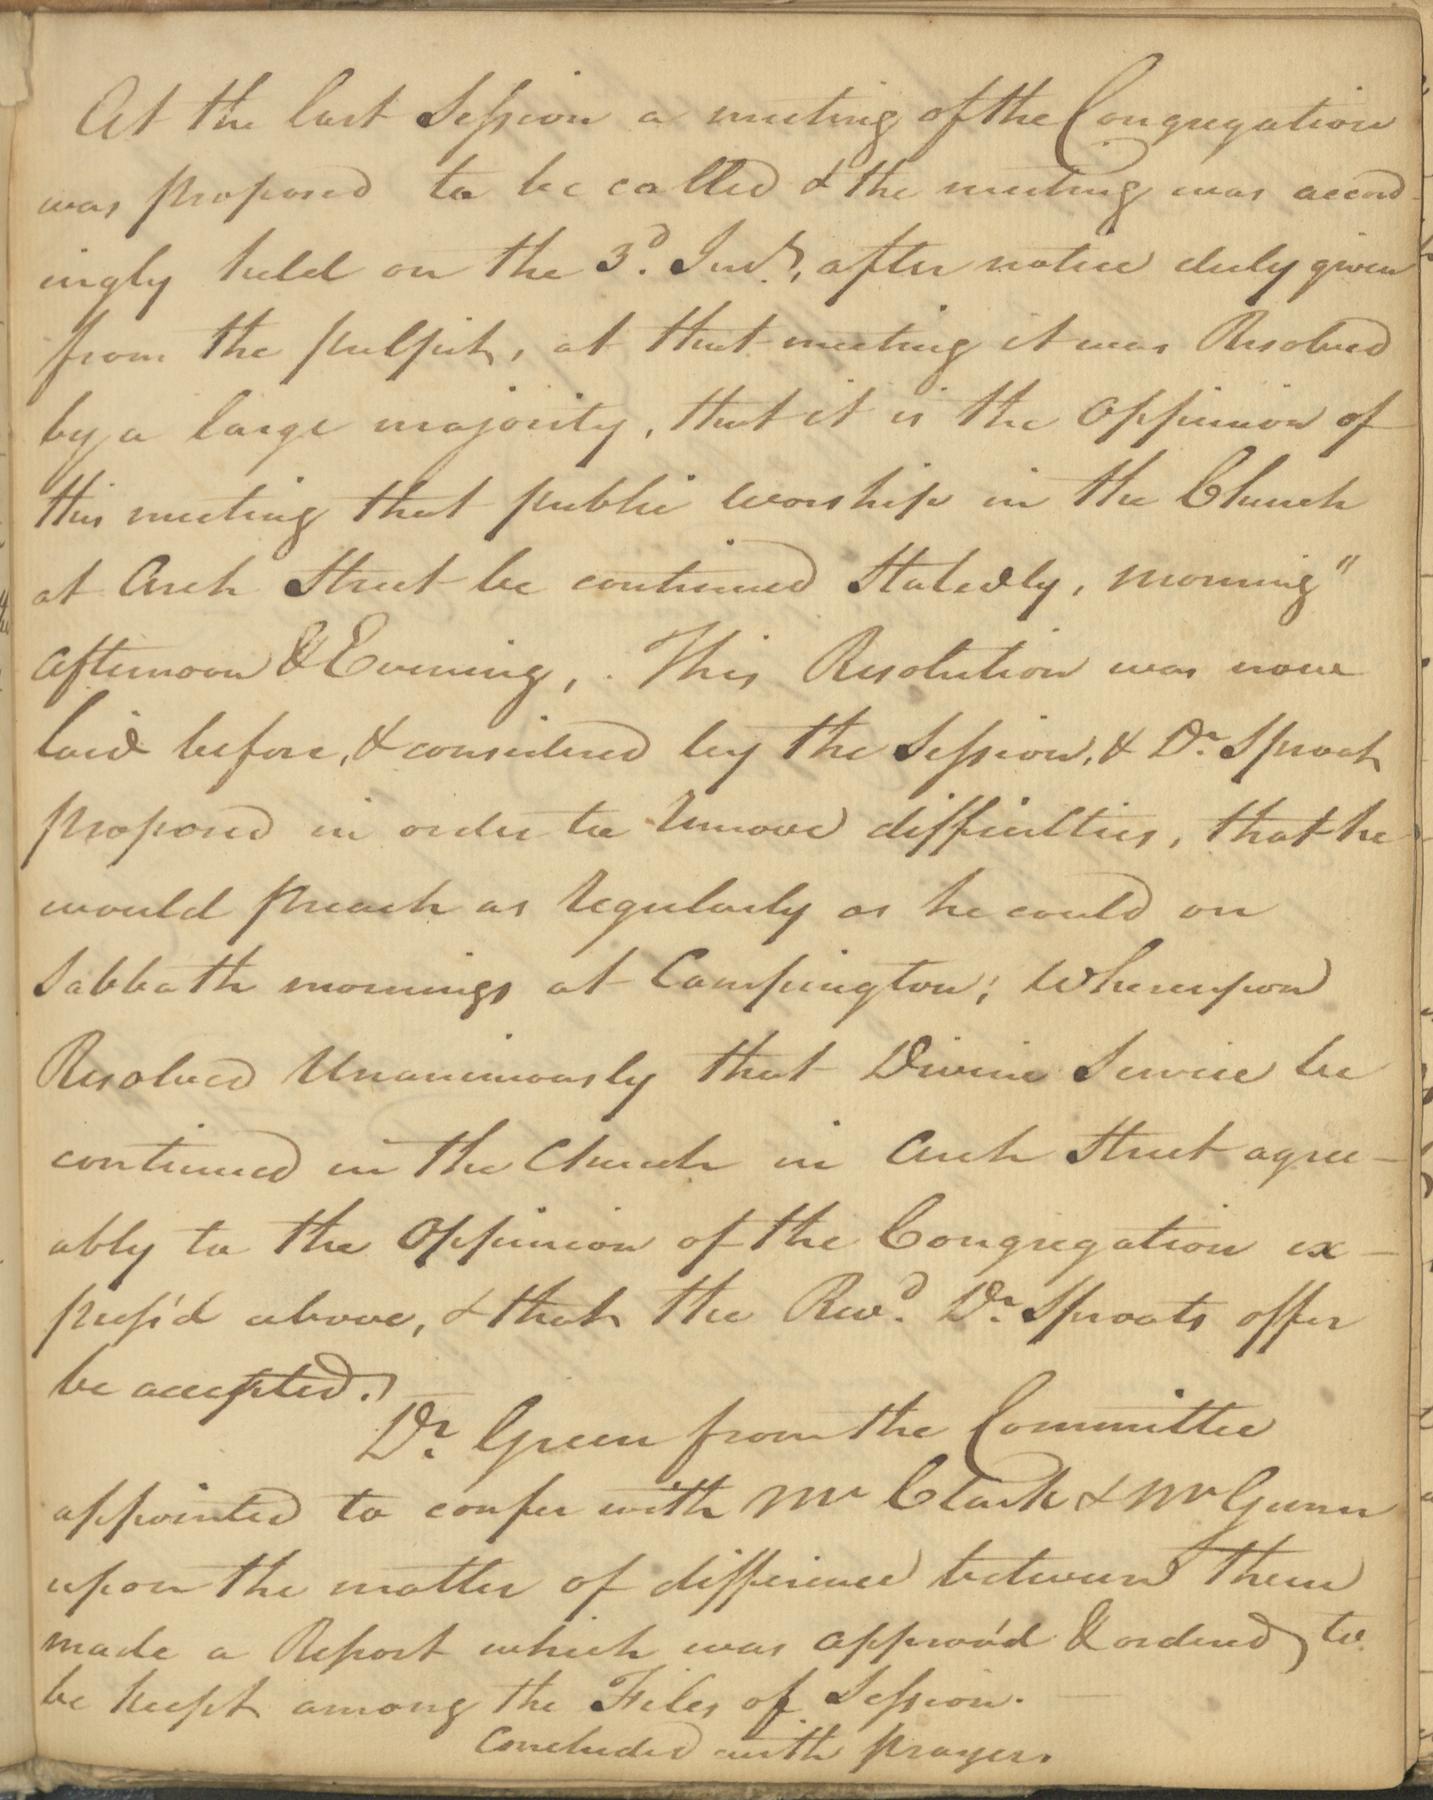 At the last Session a meeting of the Congregation
was proposed to be called & the meeting was accord
ingly held on the 3d. Inst., after notice duly given
from the pulpit, at that meeting it was Resolved
by a large majority, that it is the Oppinion of
this meeting that public worship in the Church
at Arch Street be continued Statedly, morning"
afternoon & Evening, . This Resolution was now
laid before, & considered by the Session, & Dr. Sproat
proposed in order to remove difficulties, that he
would preach as regularly as he could on
Sabbath mornings at Campington; Whereupon
Resolved Unanimously that Divine Service be
continued in the Church in Arch Street agree-
ably to the Oppinion of the Congregation ex-
press'd above, & that the Revd. Dr. Sproats offer
be accepted.
Dr. Green from the Committee
appointed to confer with Mr Clark & Mr Gunn
upon the matter of difference between them
made a Report which was approv'd & ordered to
be kept among the Files of Session. —
Concluded with prayer.